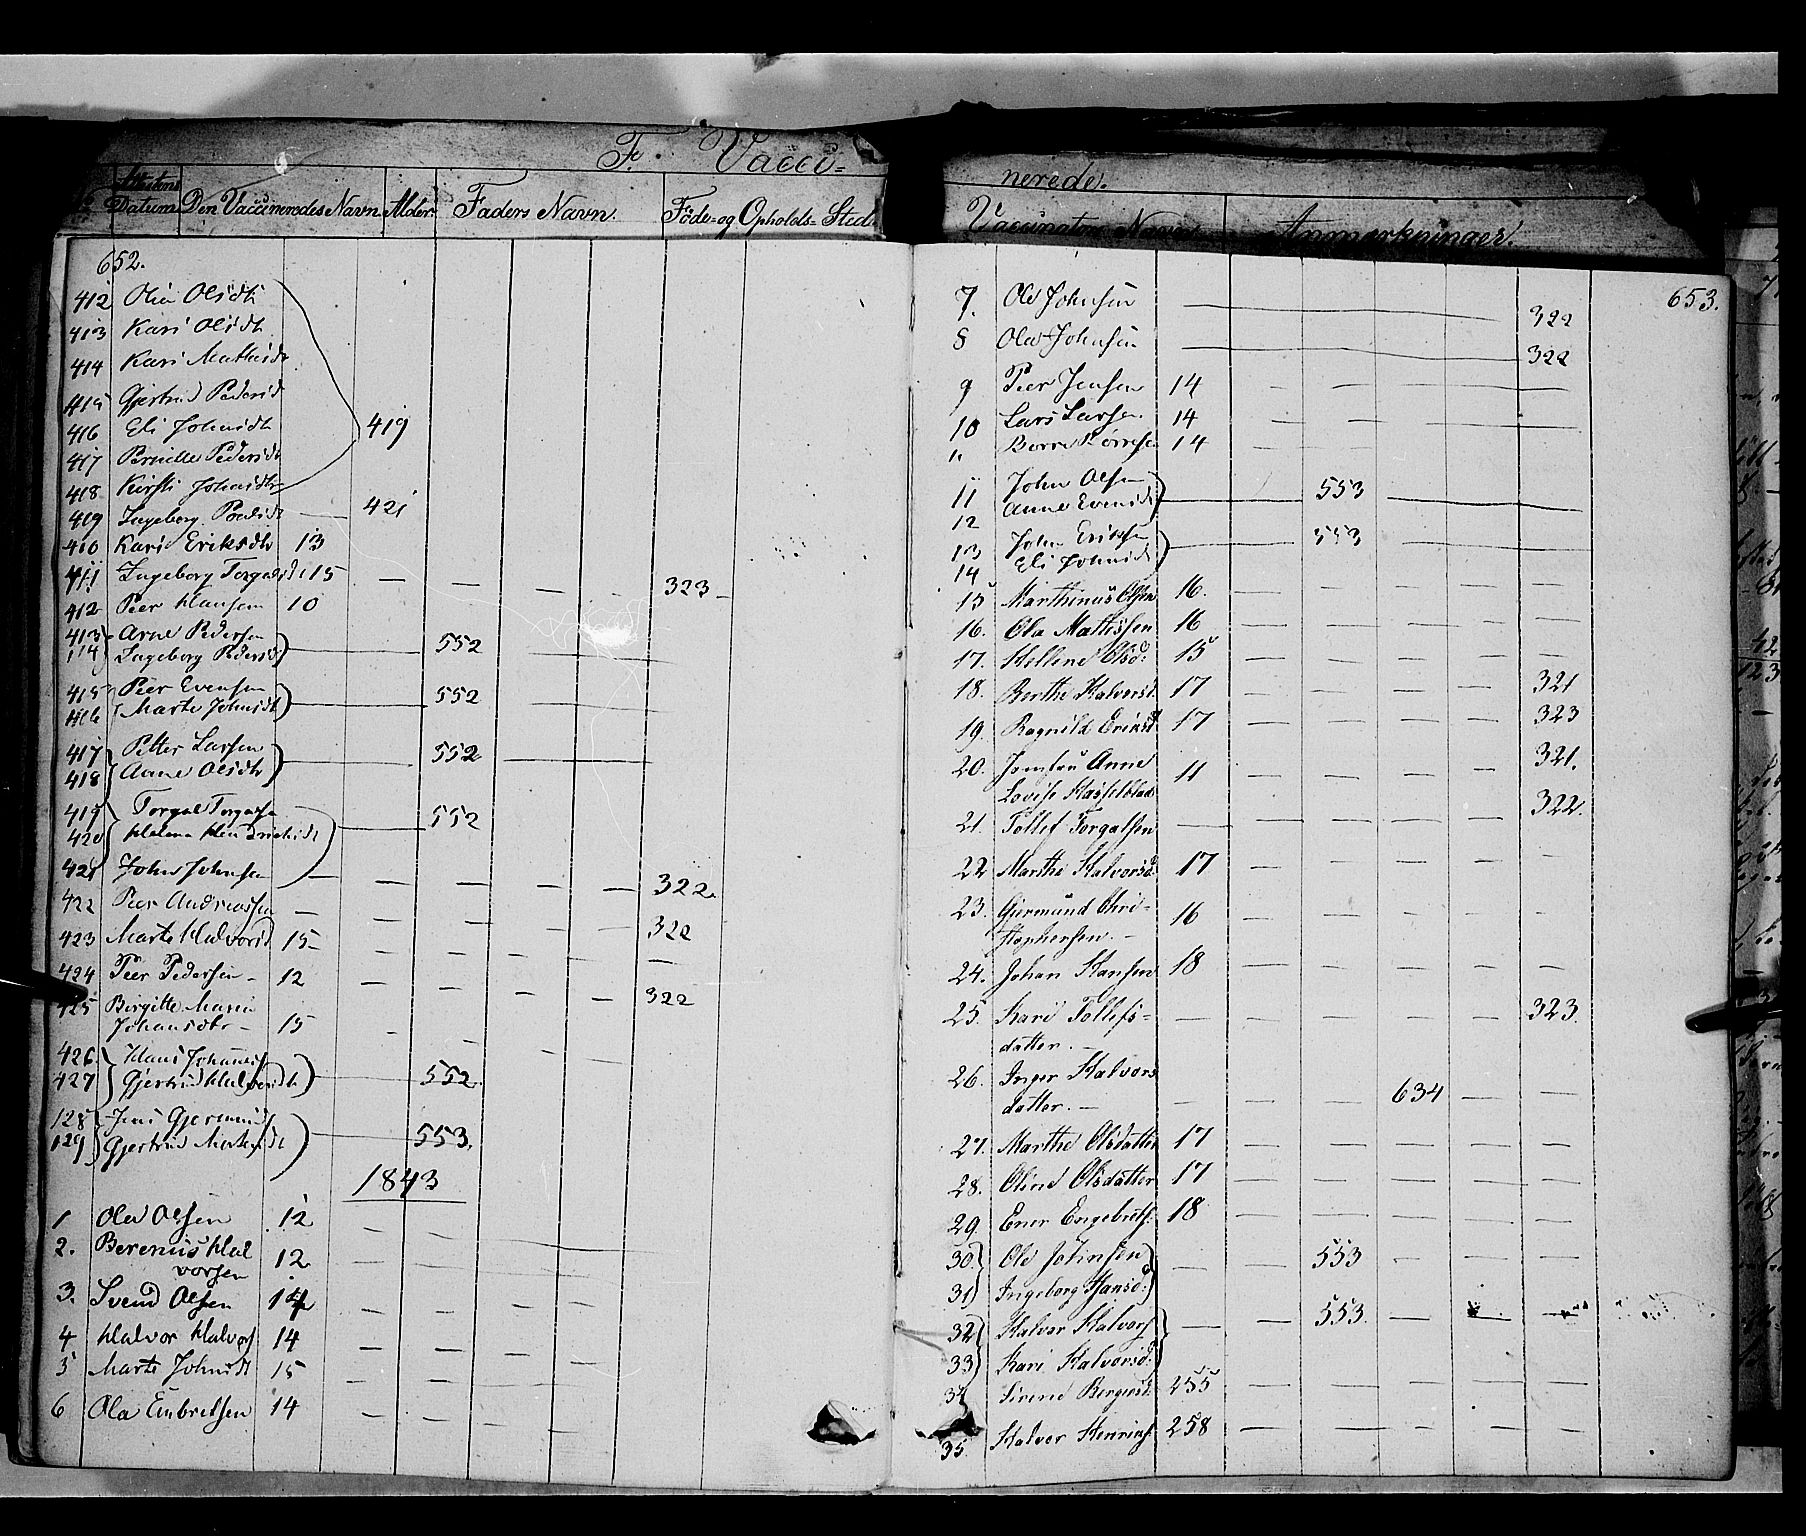 F. Vacci=
nerede.
Attestens Datum Den Vaccineredes Navn Alder Faders Navn Föde- og Opholds-Sted
Vaccinators Navn Anmærkninger.
652.
412 Olia Olsdtr
413 Kari Olsdtr
414 Kari Mathisdr
415 Gjertrud Pedersd
416 Eli Johnsdtr 419
417 Pernille Pedersdt
418 Kirsti Johnsdtr
419 Ingeborg Poulsdt — 421
410 Kari Eriksdtr 13
411 Ingeborg Torgalsd 15 — — — — 323 —
412 Peer Hansen 10
413 Arne Pedersen
114 Ingeborg Pedersd — 552 —
415 Peer Evensen
416 Marte Johnsdtr — 552 —
417 Petter Larsen
418 Anne Olsdtr — 552 —
419 Torgal Torgalsen
420 Helena Hendrichsdt — 552
421 John Johnsen — — — — — 322.
422 Peer Andreassen — — — — — 322
423 Marte Halvorsd 15 — — — — —
424 Peer Pedersen — 12 — — — — 322
425 Birgitte Maria
Johansdtr — 15 — — — —
426 Hans Johansen
427 Gjertrud Halvorsdtr — 552.
128 Jens Gjermunds
129 Gjertrud Mathisdt — 553.
1843
1 Ole Olsen 12 — —
2. Berenius Hal
vorsen 12 — —
3. Svend Olsen 14 — — — —
4 Halvor Halvors 14 — — — —
5 Marte Johnsdt 15 — —
6 Ola Embretsen 14 — — —
653.
7. Ole Johnsen — 322
8 Ole Johnsen — 322
9 Peer Jensen 14 — — — — —
10 Lars Larsen 14 — — — — —
11 Borre Börresen 14 — — — — —
11 John Olsen
12 Anne Evensdt — 553 —
13 John Eriksen
14 Eli Johnsdt — 553 —
15 Marthinus Olsen 16. — — — — —
16. Ola Mathissen 16 — — — — —
17. Hellene Olsd: 15 — — — —
18. Berthe Halvorsd. 17 — — — — 321
19. Ragnild Eriksd 17 — — — — 323
20. Jomfru Anne
Lovise Hasselblad 11 — — — — 321.
21. Tollef Torgalsen — — — — — 322.
22 Marthe Halvorsd. 17 — — — — —
23. Gjermund Chri-
stophersen. — 16 — — — — —
24. Johan Hansen 18 — — — — —
25. Kari Tollefs-
datter. — — — — — — 323.
26. Inger Halvors
datter. — — — — 634 — —
27. Marthe Olsdatter 17 — — — — —
28. Oline Olsdatter 17 — — — — —
29. Ener Engebrets. 18 — — — — —
30. Ole Johnsen
31 Ingeborg Hansd. — — 553 — — —
32 Halvor Halvors
33 Kari Halvorsd. — — 553. — — —
34 Sirene Bergersd. 255 — — — — —
35 Halvor Henriks. 258 — — — — —